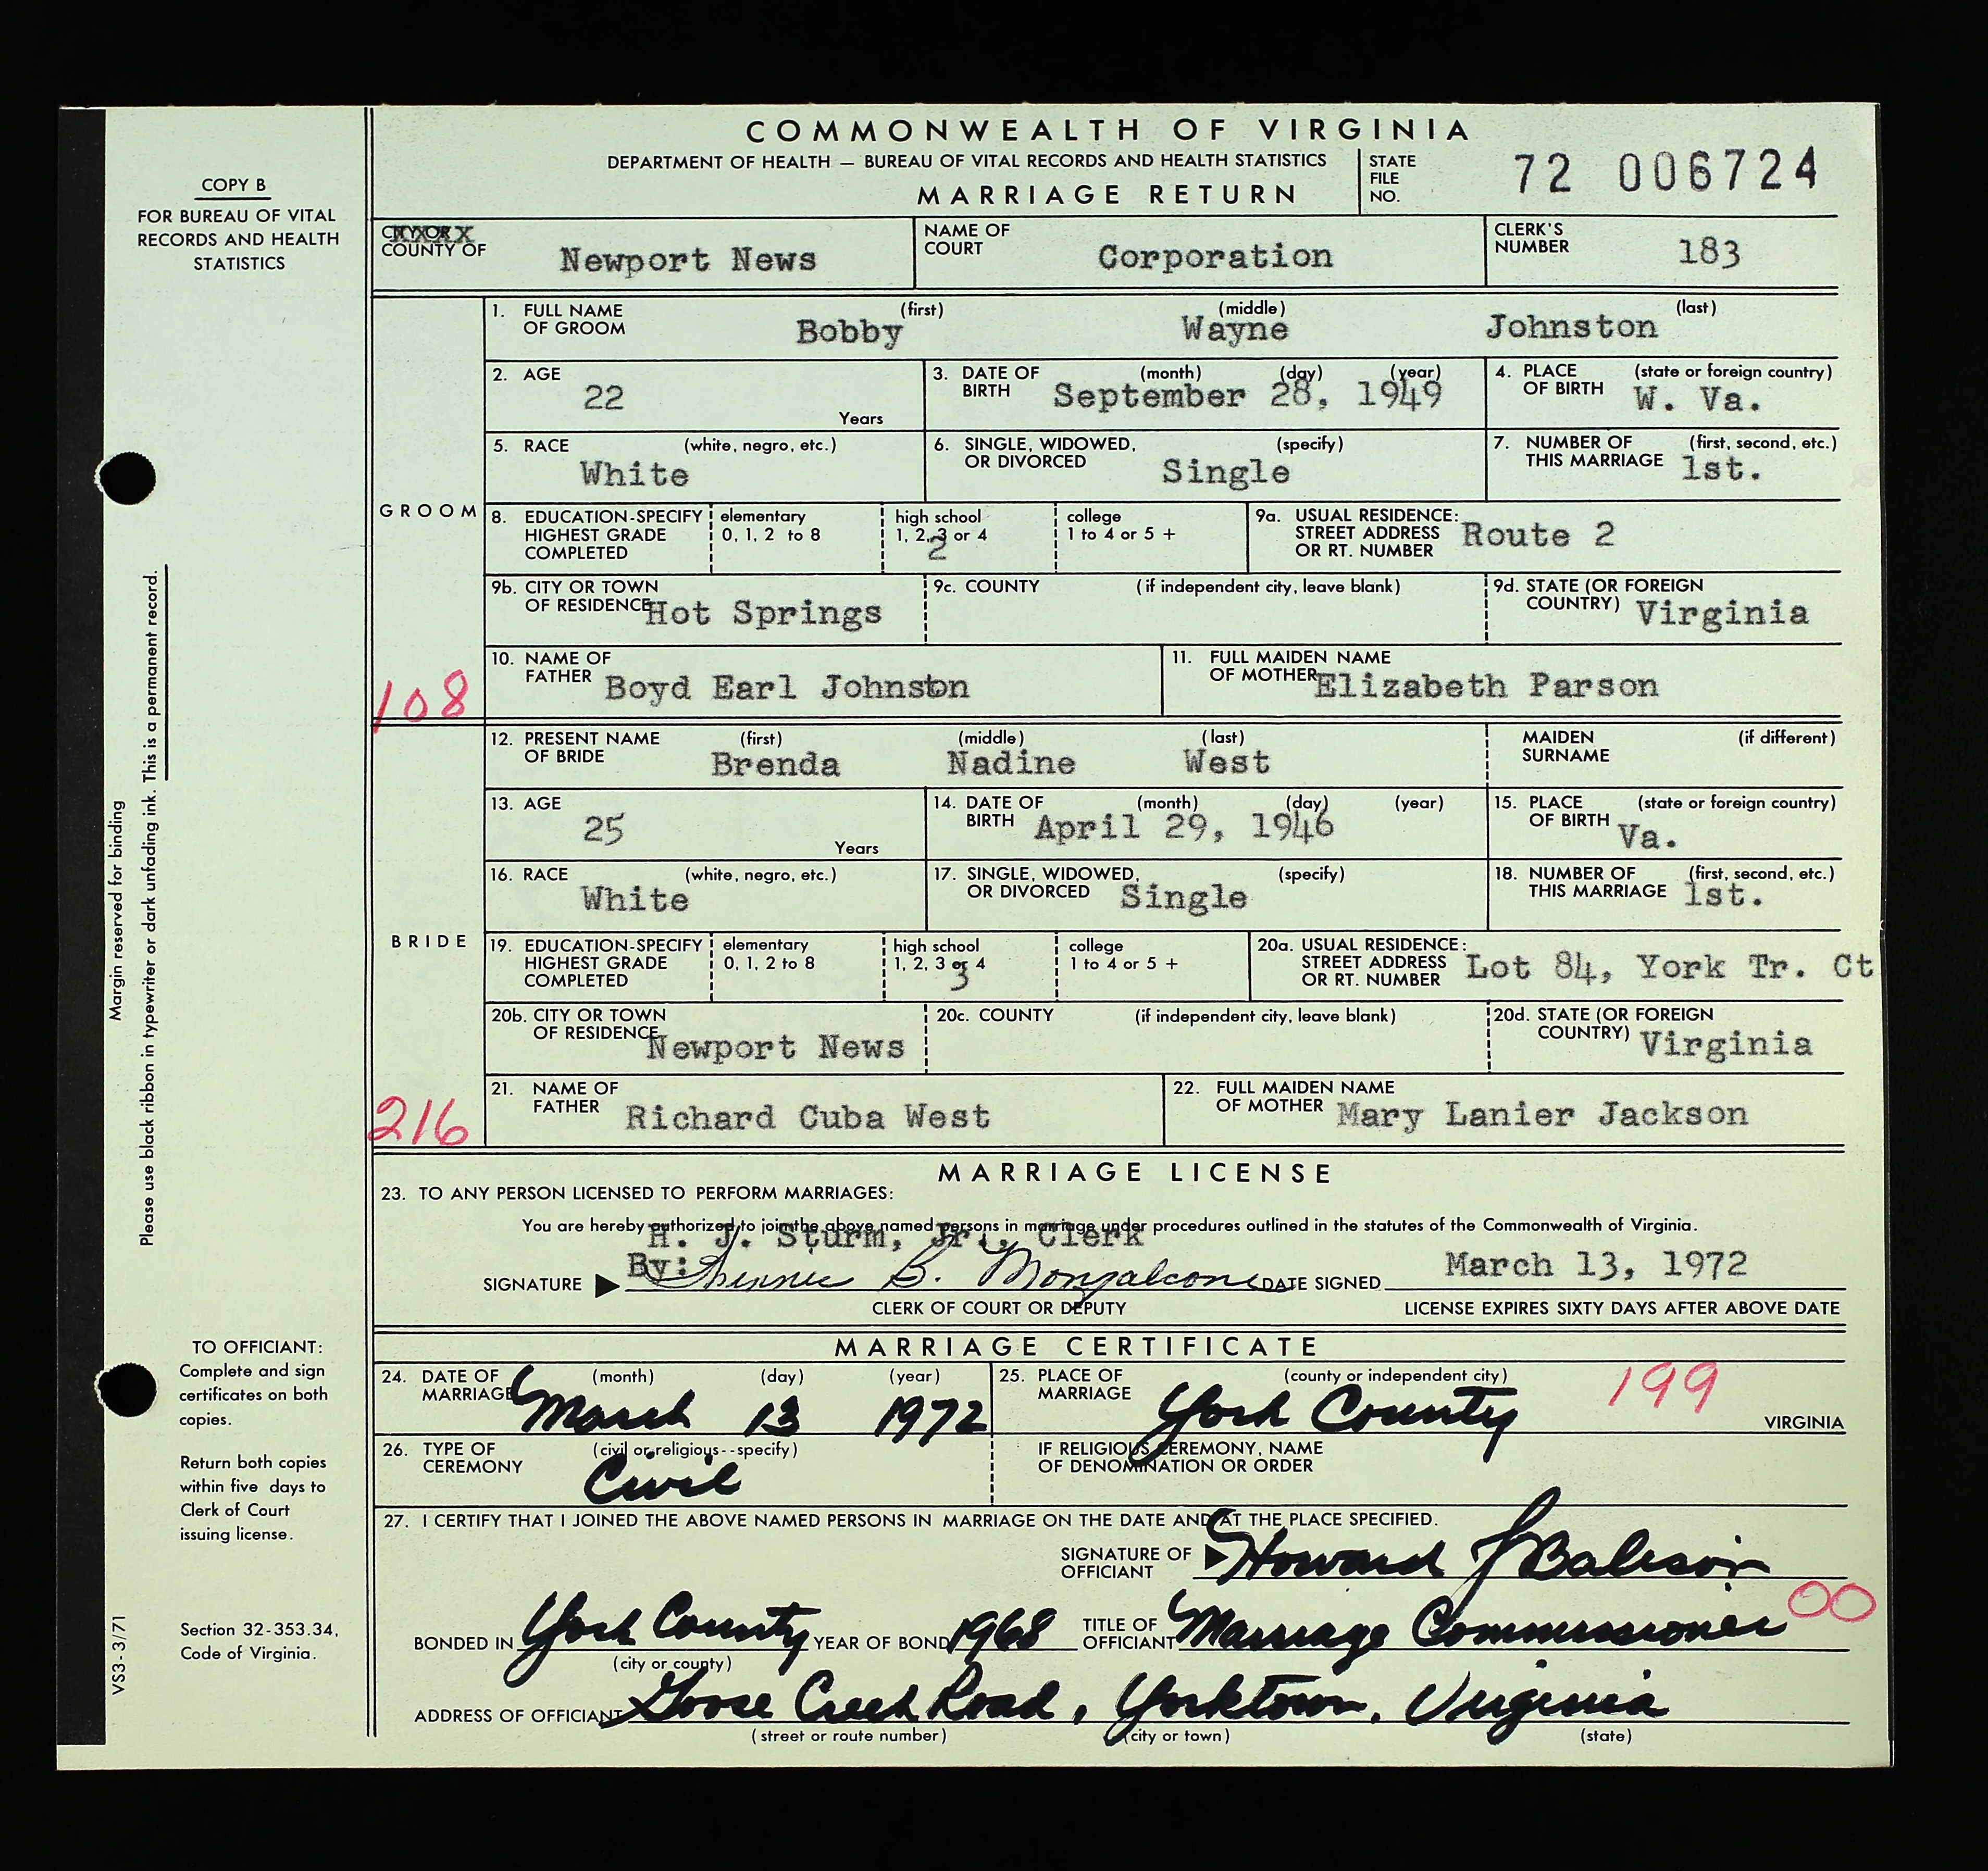 COMMONWEALTH OF VIRGINIA
DEPARTMENT OF HEALTH — BUREAU OF VITAL RECORDS AND HEALTH STATISTICS
MARRIAGE RETURN
STATE FILE NO. 72 006724
COPY B
FOR BUREAU OF VITAL
RECORDS AND HEALTH
STATISTICS
CITY OR COUNTY OF Newport News
NAME OF COURT Corporation
CLERK'S NUMBER 183
GROOM
1. FULL NAME OF GROOM (first) Bobby (middle) Wayne (last) Johnston
2. AGE 22 Years
3. DATE OF BIRTH (month) (day) (year) September 28, 1949
4. PLACE OF BIRTH (state or foreign country) W. Va.
5. RACE (white, negro, etc.) White
6. SINGLE, WIDOWED, OR DIVORCED (specify) Single
7. NUMBER OF THIS MARRIAGE (first, second, etc.) 1st.
8. EDUCATION-SPECIFY HIGHEST GRADE COMPLETED elementary 0, 1, 2 to 8 high school 1, 2, 3 or 4 2 college 1 to 4 or 5 +
9a. USUAL RESIDENCE: STREET ADDRESS OR RT. NUMBER Route 2
9b. CITY OR TOWN OF RESIDENCE Hot Springs
9c. COUNTY (if independent city, leave blank)
9d. STATE (OR FOREIGN COUNTRY) Virginia
10. NAME OF FATHER Boyd Earl Johnston
11. FULL MAIDEN NAME OF MOTHER Elizabeth Parson
108
BRIDE
12. PRESENT NAME OF BRIDE (first) Brenda (middle) Nadine (last) West
MAIDEN SURNAME (if different)
13. AGE 25 Years
14. DATE OF BIRTH (month) (day) (year) April 29, 1946
15. PLACE OF BIRTH (state or foreign country) Va.
16. RACE (white, negro, etc.) White
17. SINGLE, WIDOWED, OR DIVORCED (specify) Single
18. NUMBER OF THIS MARRIAGE (first, second, etc.) 1st.
19. EDUCATION-SPECIFY HIGHEST GRADE COMPLETED elementary 0, 1, 2 to 8 high school 1, 2, 3 or 4 3 college 1 to 4 or 5 +
20a. USUAL RESIDENCE: STREET ADDRESS OR RT. NUMBER Lot 84, York Tr. Ct
20b. CITY OR TOWN OF RESIDENCE Newport News
20c. COUNTY (if independent city, leave blank)
20d. STATE (OR FOREIGN COUNTRY) Virginia
21. NAME OF FATHER Richard Cuba West
22. FULL MAIDEN NAME OF MOTHER Mary Lanier Jackson
216
MARRIAGE LICENSE
23. TO ANY PERSON LICENSED TO PERFORM MARRIAGES:
You are hereby authorized to join the above named persons in marriage under procedures outlined in the statutes of the Commonwealth of Virginia.
H. J. Sturm, Jr., Clerk
SIGNATURE By: B. DATE SIGNED March 13, 1972
CLERK OF COURT OR DEPUTY
LICENSE EXPIRES SIXTY DAYS AFTER ABOVE DATE
MARRIAGE CERTIFICATE
24. DATE OF MARRIAGE (month) (day) (year) March 13 1972
25. PLACE OF MARRIAGE (county or independent city) York County 199 VIRGINIA
26. TYPE OF CEREMONY (civil or religious--specify) Civil
IF RELIGIOUS CEREMONY, NAME OF DENOMINATION OR ORDER
27. I CERTIFY THAT I JOINED THE ABOVE NAMED PERSONS IN MARRIAGE ON THE DATE AND AT THE PLACE SPECIFIED.
SIGNATURE OF OFFICIANT Howard J
BONDED IN York County (city or county) YEAR OF BOND 1968 TITLE OF OFFICIANT Marriage Commissioner 00
ADDRESS OF OFFICIANT Goose Creek Road, Yorktown, Virginia
(street or route number) (city or town) (state)
Margin reserved for binding
Please use black ribbon in typewriter or dark unfading ink. This is a permanent record.
TO OFFICIANT:
Complete and sign
certificates on both
copies.
Return both copies
within five days to
Clerk of Court
issuing license.
Section 32-353.34,
Code of Virginia.
VS3-3/71